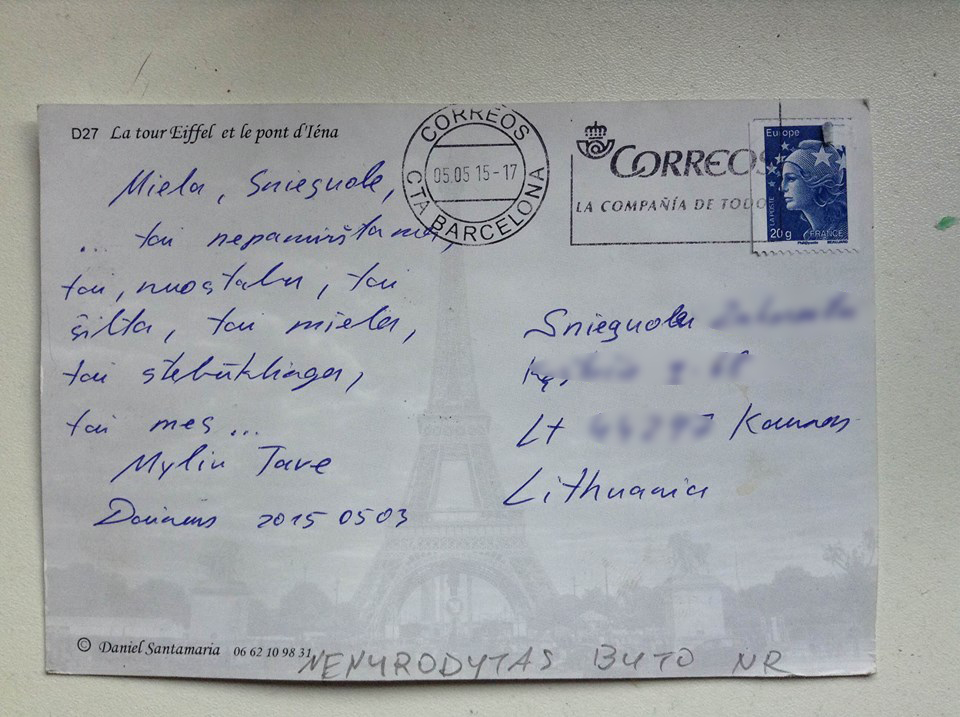 D27 La tour Eiffel et le pont d'Iéna
Miela, Snieguole,
... tai nepamirštama,
tai, nuostabu, tai
šilta, tai miela,
tai stebuklinga,
tai mes ...
Myliu Tave
Dainius 2015 05 03
CORREOS
05.05 15-17
CTA BARCELONA
CORREOS
LA COMPAÑÍA DE TODO
Europe
LA POSTE
20g FRANCE
Snieguolei
Lt Kaunas
Lithuania
© Daniel Santamaria 06 62 10 98 31
NENURODYTAS BUTO NR